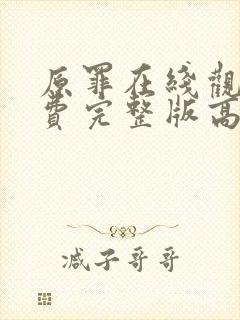 原罪在綫觀
費完整版高
减子哥哥